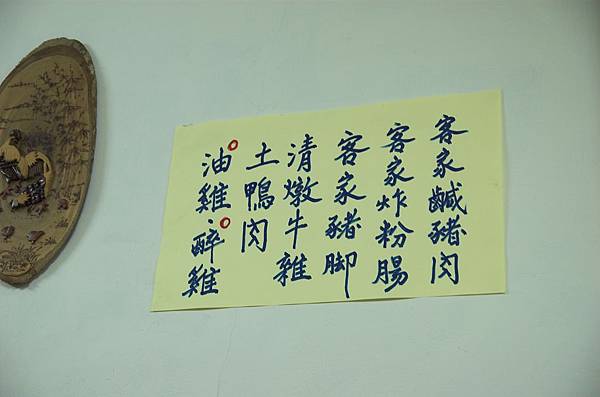 客家鹹豬肉
客家炸粉腸
客家豬脚
清燉牛雜
土鴨肉
油雞、醉雞